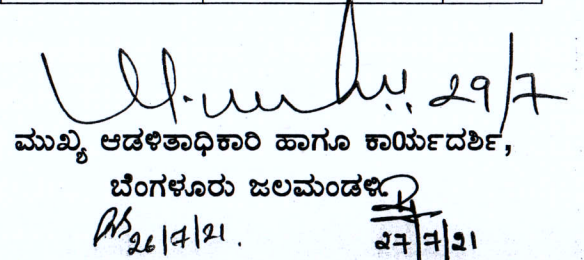 29/7
ಮುಖ್ಯ ಆಡಳಿತಾಧಿಕಾರಿ ಹಾಗೂ ಕಾರ್ಯದರ್ಶಿ,
ಬೆಂಗಳೂರು ಜಲಮಂಡಳಿ
26/7/21. 27/7/21